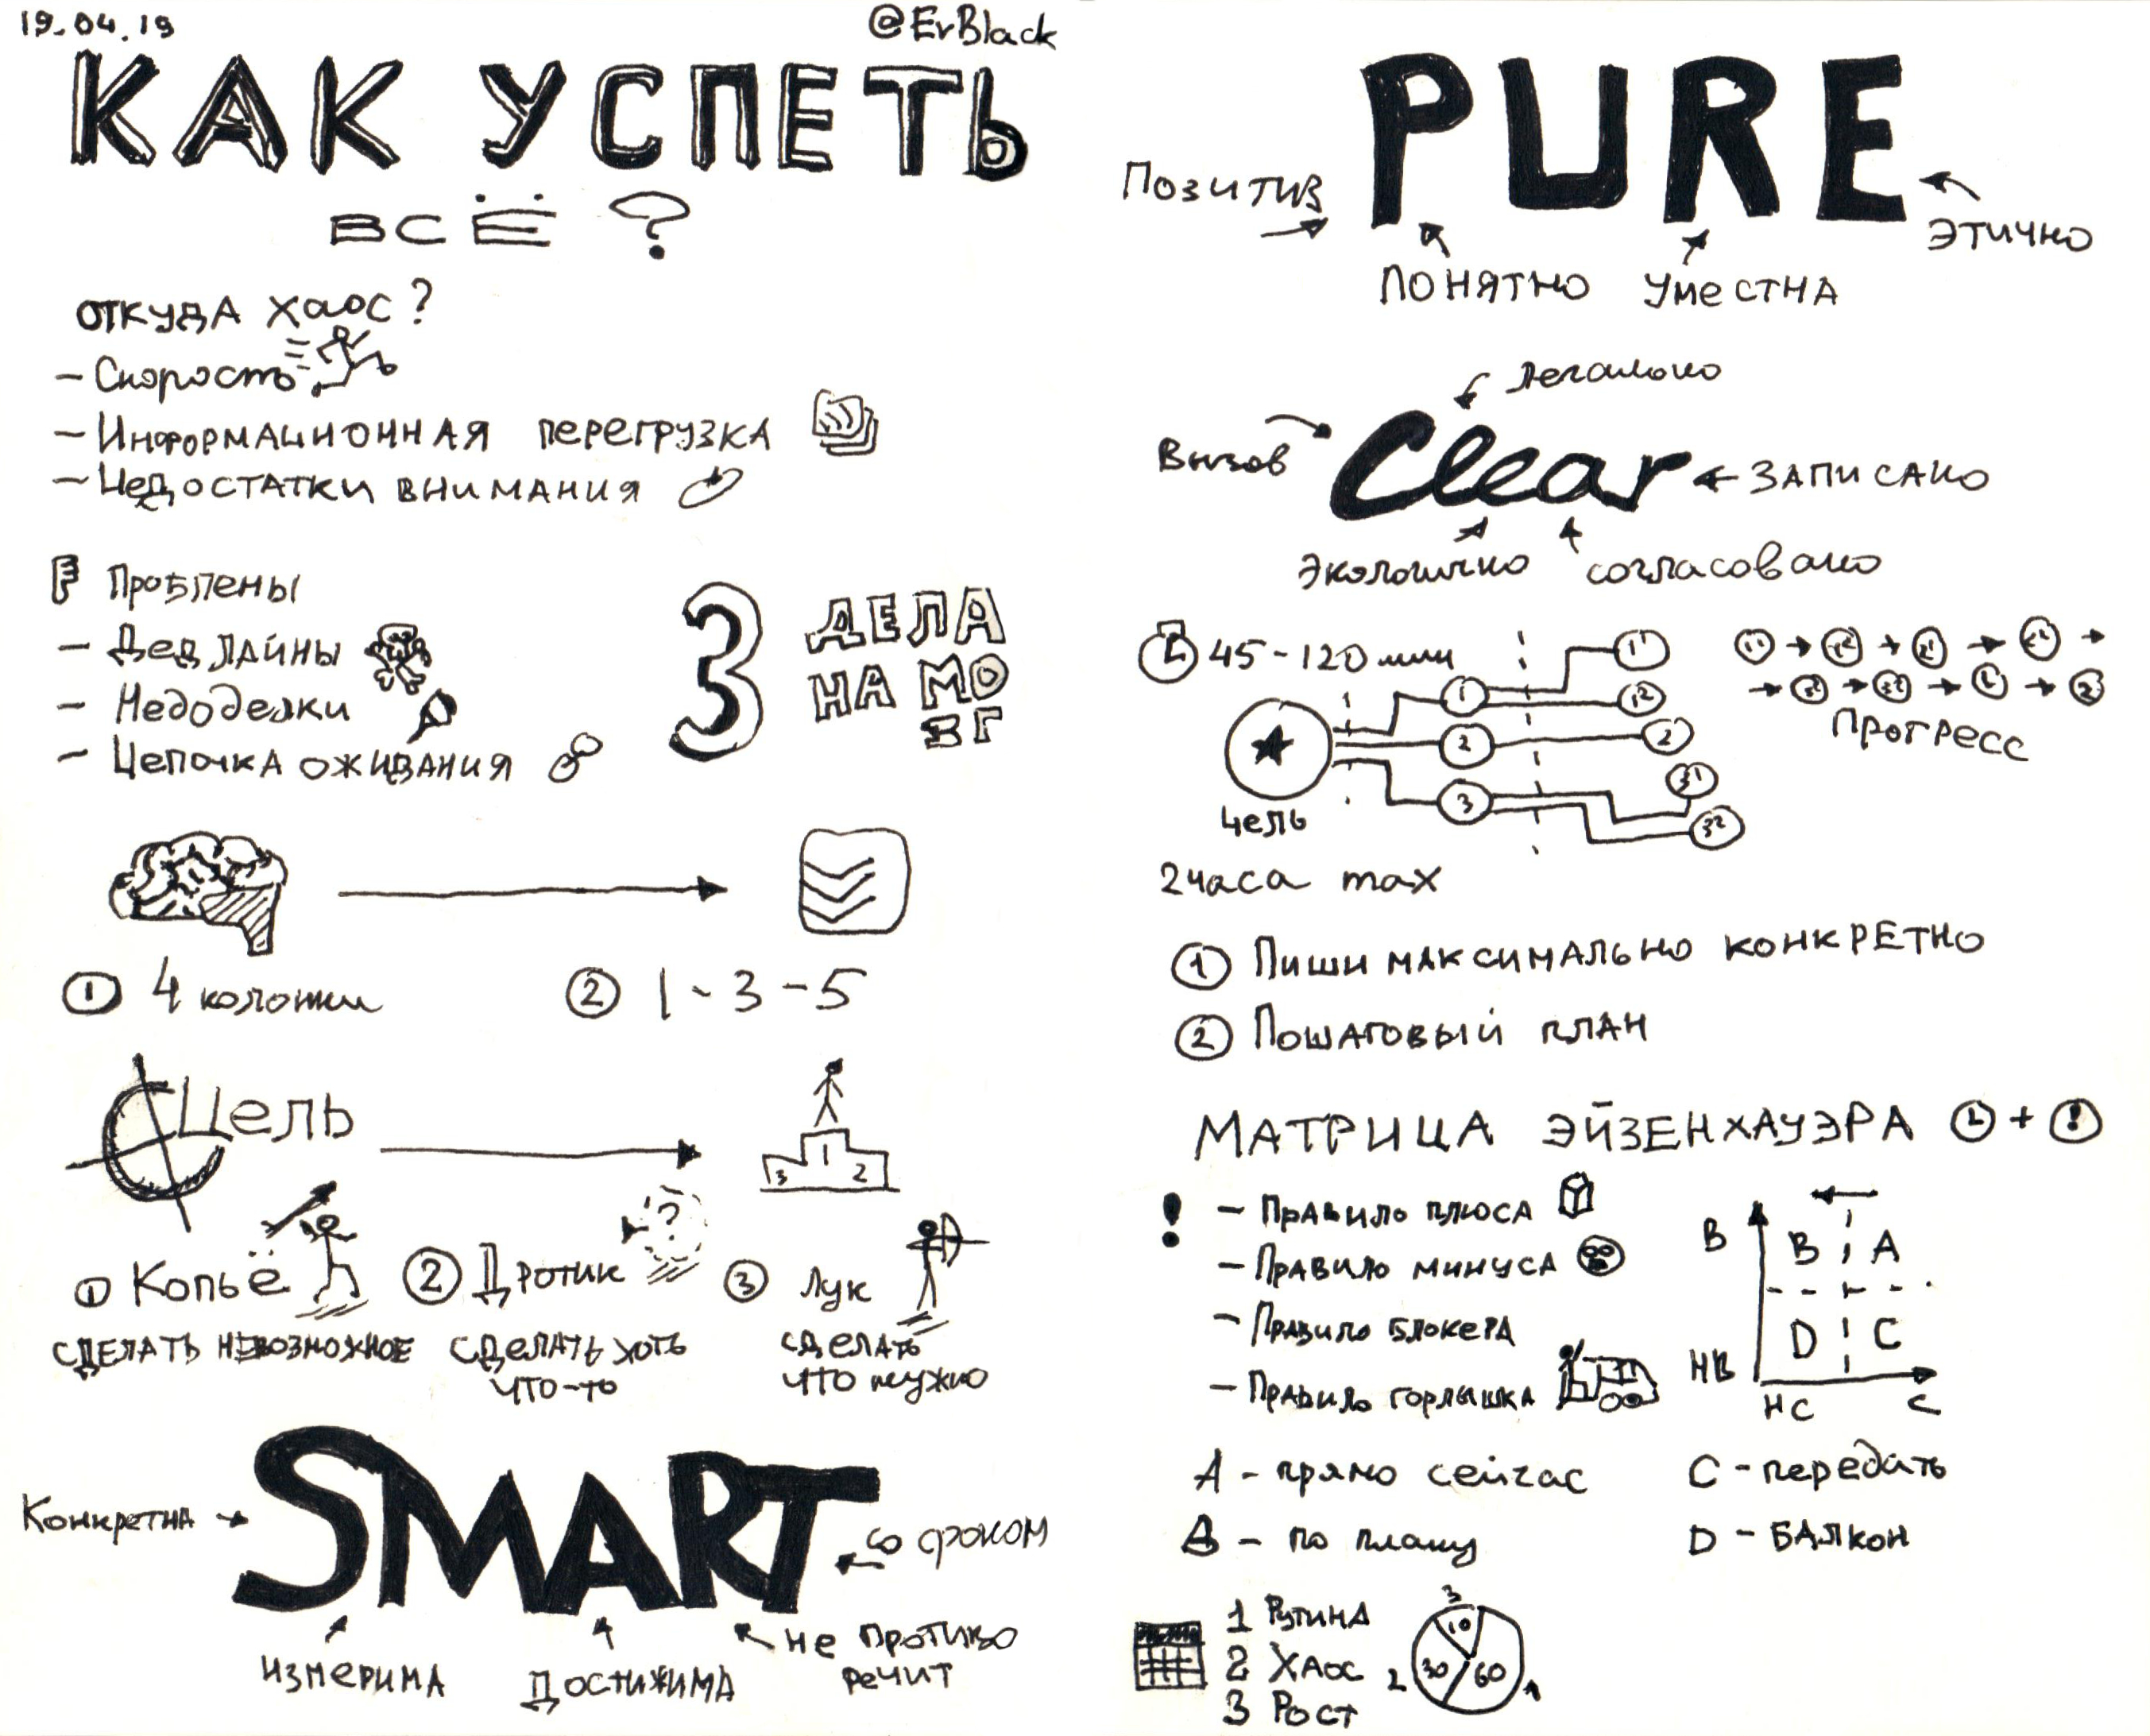 19.04.19
@ErBlack
КАК УСПЕТЬ
ВСЁ?
ОТКУДА ХАОС?
- Скорость
- Информационная перегрузка
- Недостатки внимания
Проблемы
- Дедлайны
- Недоделки
- Цепочка ожидания
3 ДЕЛА
НА МО
ЗГ
1 4 колонки
2 1-3-5
Цель
3 1 2
1 Копьё
2 Дротик
?
3 Лук
СДЕЛАТЬ НЕВОЗМОЖНОЕ
СДЕЛАТЬ ХОТЬ
ЧТО-ТО
СДЕЛАТЬ
ЧТО нужно
SMART
Конкретна
со сроком
Измерима
Достижима
Не противо
речит
PURE
Позитив
Этично
Понятно
Уместна
Легально
Вызов
Clear
Записано
Экологично
согласовано
45-120 мин
1
1'
12
2
2
3
31
32
Прогресс
цель
2 часа max
1 Пиши максимально конкретно
2 Пошаговый план
МАТРИЦА ЭЙЗЕНХАУЭРА + !
!
- Правило плюса
- Правило минуса
- Правило блокера
- Правило горлышка
В
B A
D C
НВ
НС С
A - прямо сейчас
C - передать
B - по плану
D - БАЛКОН
1 Рутина
2 Хаос
3 Рост
3
10
30 60
2
1